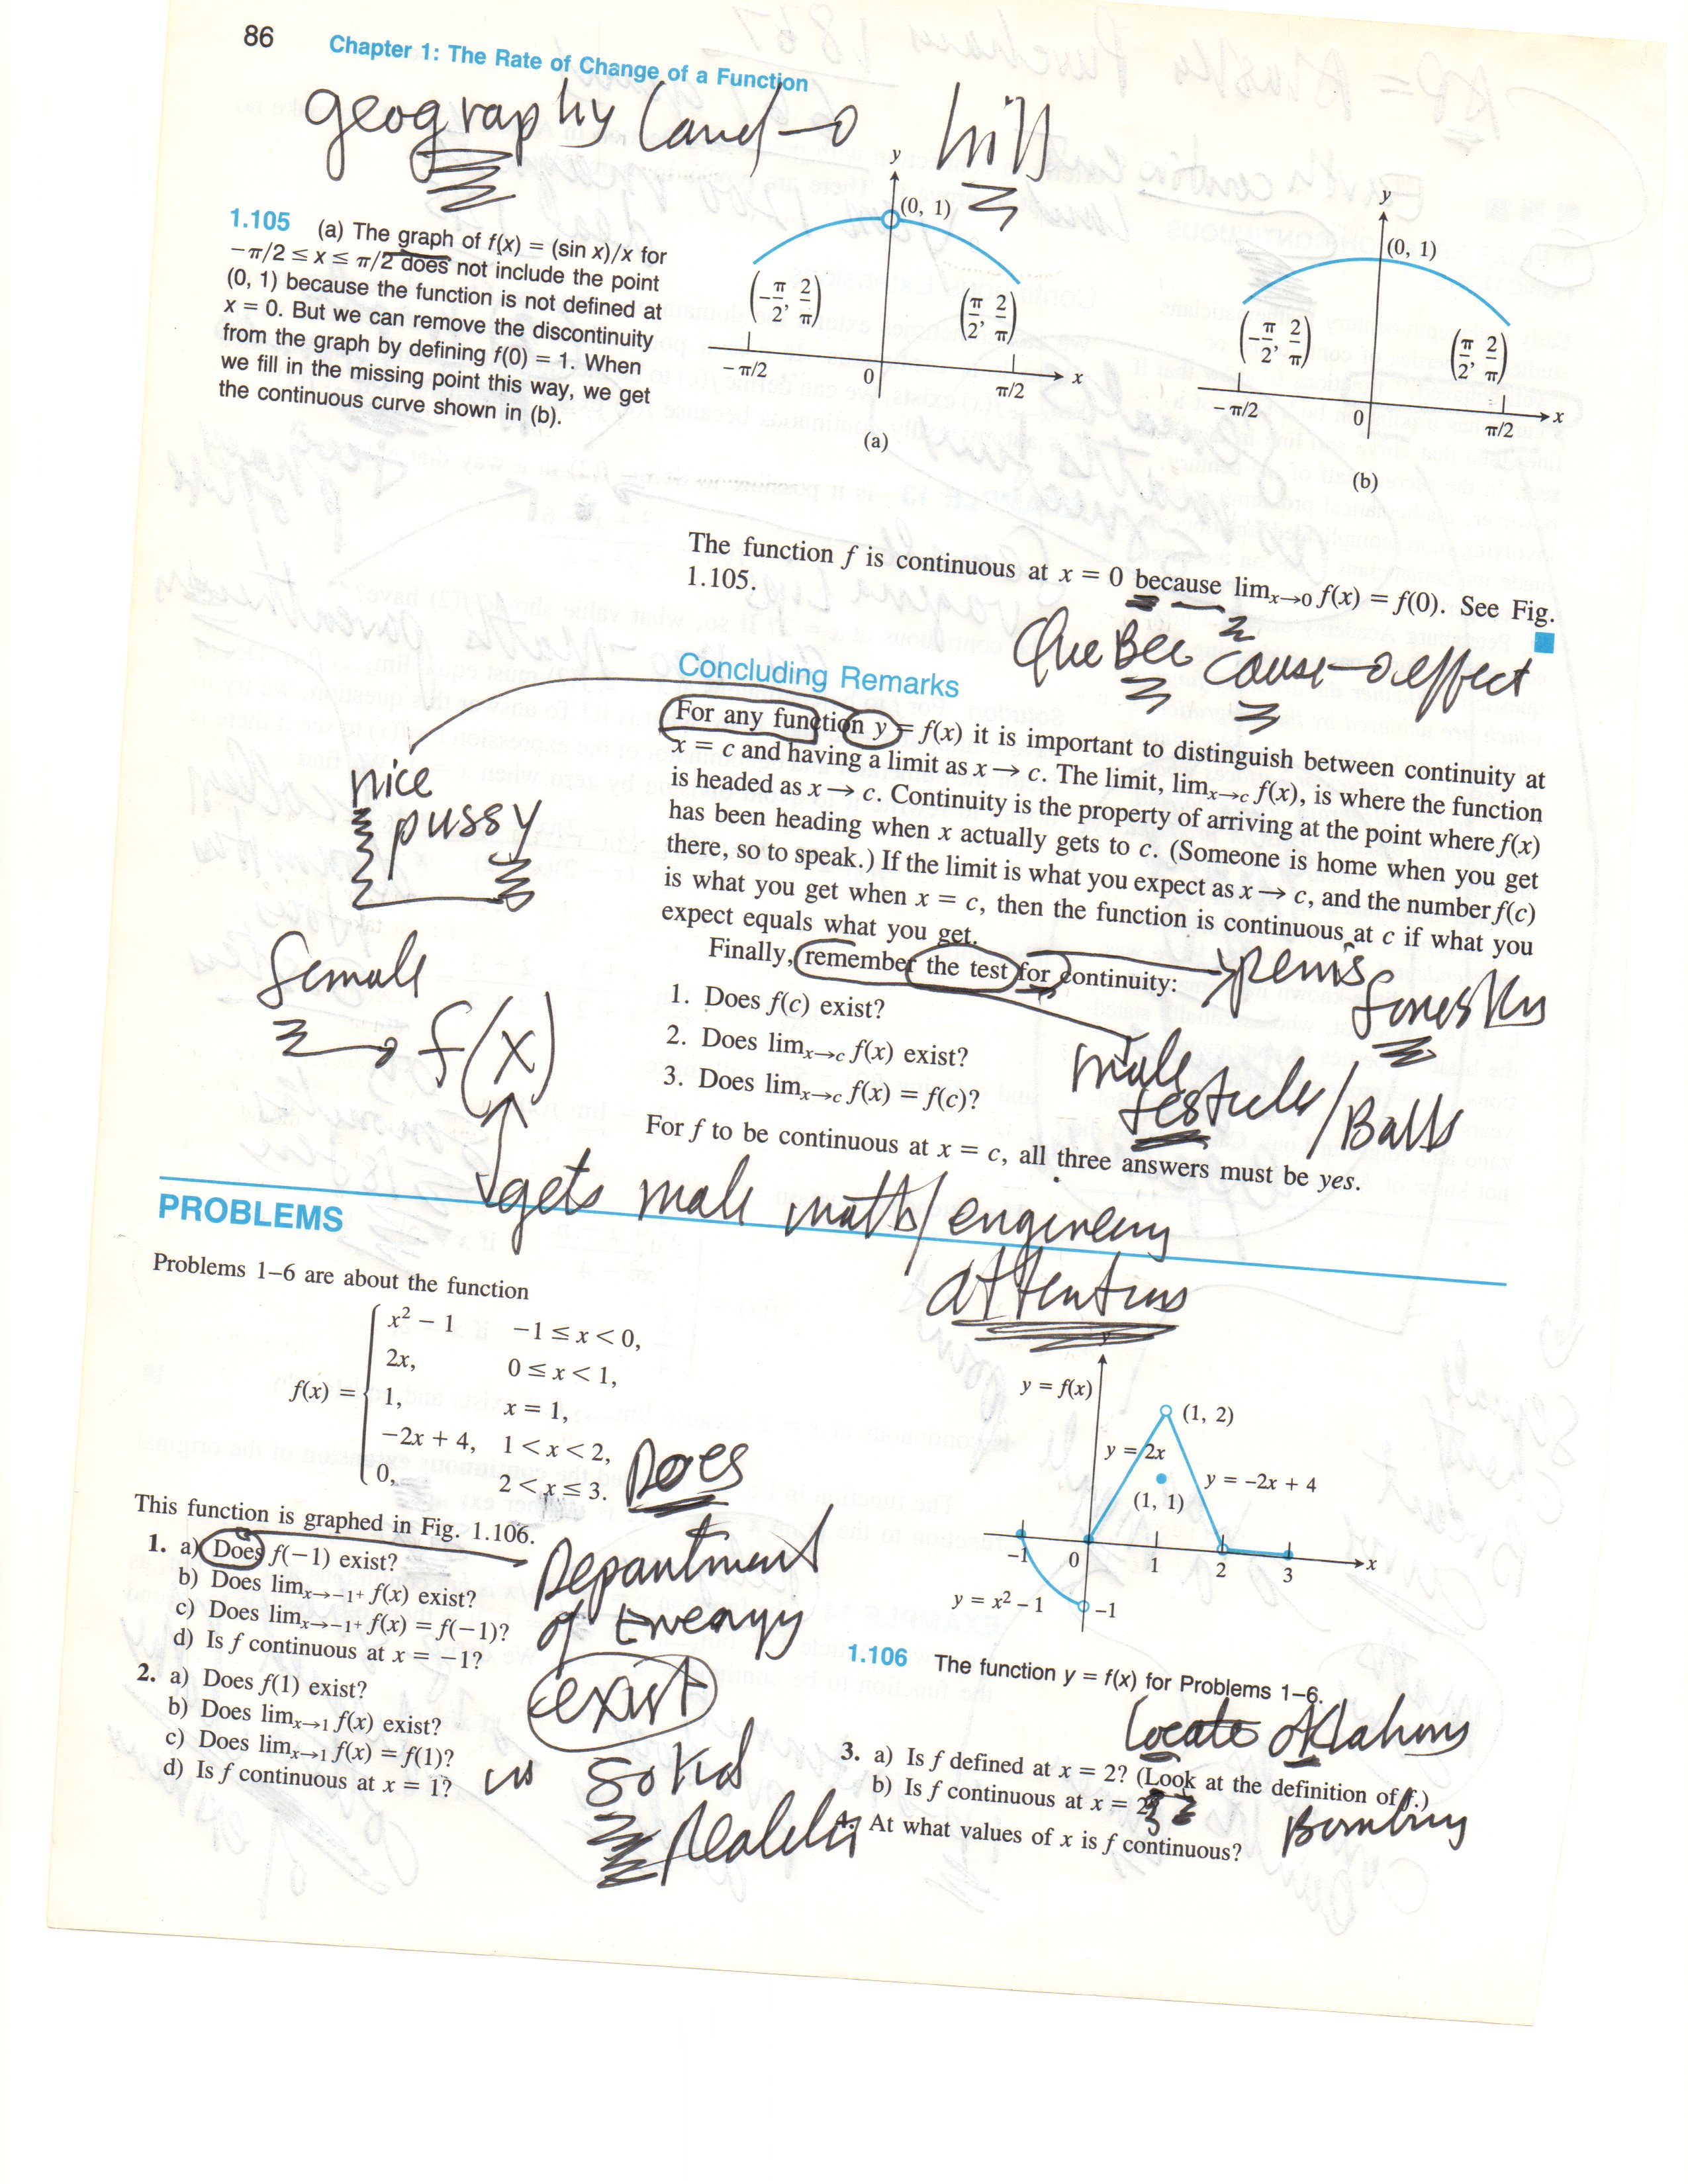 86 Chapter 1: The Rate of Change of a Function
geography land → hill
1.105 (a) The graph of f(x) = (sin x)/x for
−π/2 ≤ x ≤ π/2 does not include the point
(0, 1) because the function is not defined at
x = 0. But we can remove the discontinuity
from the graph by defining f(0) = 1. When
we fill in the missing point this way, we get
the continuous curve shown in (b).
y
(0, 1)
(−π/2, 2/π)
(π/2, 2/π)
−π/2
0
π/2
x
(a)
y
(0, 1)
(−π/2, 2/π)
(π/2, 2/π)
−π/2
0
π/2
x
(b)
The function f is continuous at x = 0 because limx→0 f(x) = f(0). See Fig.
1.105.
QueBec cause → effect
Concluding Remarks
For any function y = f(x) it is important to distinguish between continuity at
x = c and having a limit as x → c. The limit, limx→c f(x), is where the function
is headed as x → c. Continuity is the property of arriving at the point where f(x)
has been heading when x actually gets to c. (Someone is home when you get
there, so to speak.) If the limit is what you expect as x → c, and the number f(c)
is what you get when x = c, then the function is continuous at c if what you
expect equals what you get.
nice
pussy
Finally, remember the test for continuity:
penis
foreskin
1. Does f(c) exist?
2. Does limx→c f(x) exist?
3. Does limx→c f(x) = f(c)?
male
testicles/Balls
For f to be continuous at x = c, all three answers must be yes.
female
→ f(x)
gets male math/engineery
attentions
PROBLEMS
Problems 1–6 are about the function
f(x) =
x² − 1 −1 ≤ x < 0,
2x, 0 ≤ x < 1,
1, x = 1,
−2x + 4, 1 < x < 2,
0, 2 < x ≤ 3.
This function is graphed in Fig. 1.106.
1. a) Does f(−1) exist?
b) Does limx→−1+ f(x) exist?
c) Does limx→−1+ f(x) = f(−1)?
d) Is f continuous at x = −1?
2. a) Does f(1) exist?
b) Does limx→1 f(x) exist?
c) Does limx→1 f(x) = f(1)?
d) Is f continuous at x = 1?
DOES
Department
of Energy
exist
us solid
Reality
y
y = f(x)
(1, 2)
y = 2x
y = −2x + 4
(1, 1)
−1
0
1
2
3
x
y = x² − 1
−1
1.106 The function y = f(x) for Problems 1–6.
Locate Oklahoma
3. a) Is f defined at x = 2? (Look at the definition of f.)
b) Is f continuous at x = 2?
Bombing
4. At what values of x is f continuous?